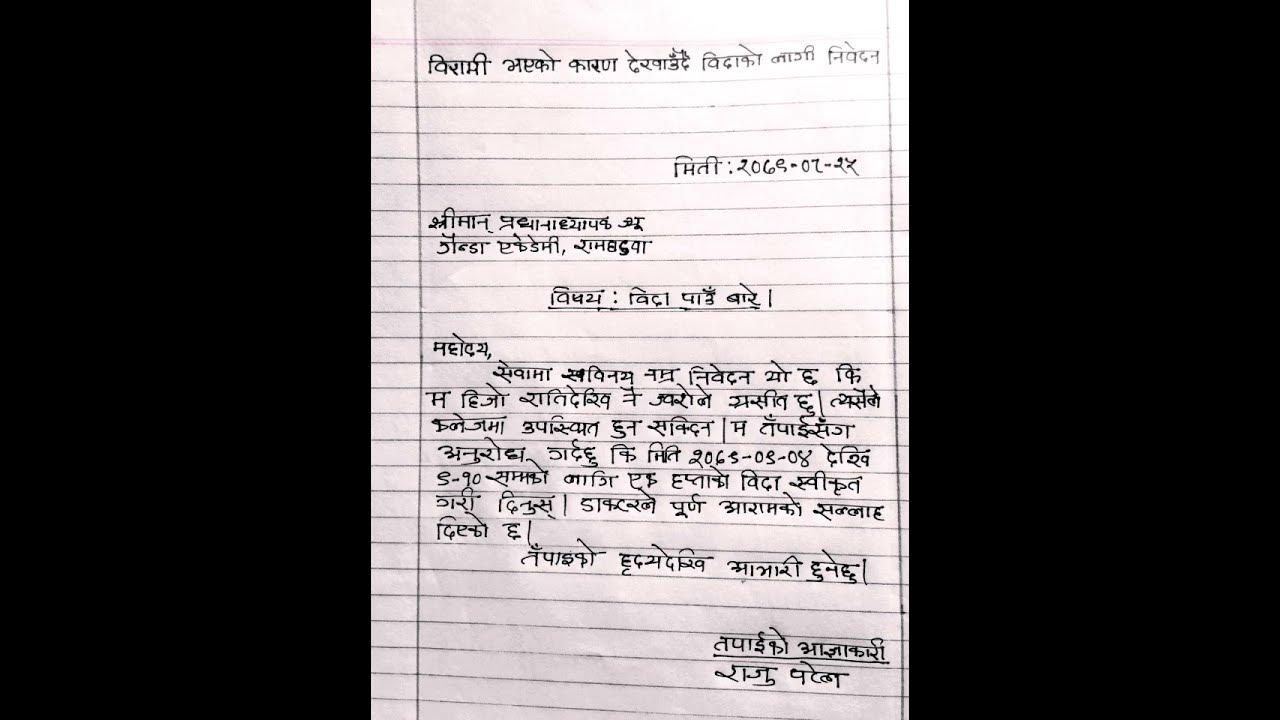 विरामी भएको कारण देखाउँदै विदाको लागी निवेदन
मिती : २०७९-०८-२५
श्रीमान् प्रधानाध्यापक ज्यू
गैन्डा एकेडेमी, रामगढुवा
विषय : विदा पाउँ बारे |
महोदय,
सेवामा सविनय नम्र निवेदन यो छ कि
म हिजो रातिदेखि नै ज्वरोले ग्रसीत छु | त्यसैले
कलेजमा उपस्थित हुन सक्दिन | म तँपाईसँग
अनुरोध गर्दछु कि मिति २०७९-०९-०४ देखि
९-१० सम्मको लागि एक हप्ताको विदा स्वीकृत
गरी दिनुस् | डाक्टरले पूर्ण आरामको सल्लाह
दिएको छ |
तँपाइको हृदयदेखि आभारी हुनेछु |
तपाईको आज्ञाकारी
राजु पटेल